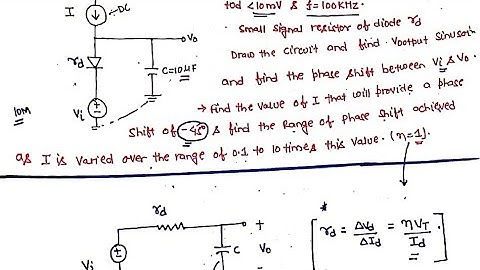 I
DC
tod <10mV & f=100KHz.
Small signal resistor of diode rd
Draw the circuit and find Voutput sinusoin
and find the phase shift between Vi & Vo.
→ Find the value of I that will provide a phase
shift of -45° & find the Range of phase shift achieved
as I is varied over the range of 0.1 to 10 times this value. (η=1).
Vo
rd
C=10μF
10m
Vi
rd
+
C
Vo
Vi
[rd = ΔVd/ΔId = ηVT/Id]